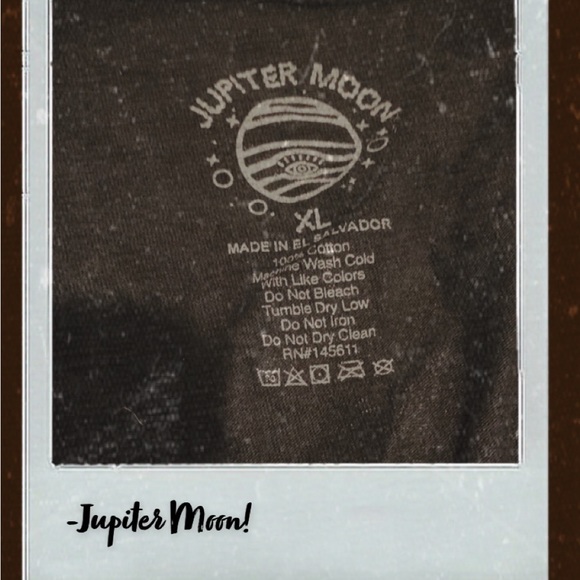 JUPITER MOON
XL
MADE IN EL SALVADOR
100% Cotton
Machine Wash Cold
With Like Colors
Do Not Bleach
Tumble Dry Low
Do Not Iron
Do Not Dry Clean
RN#145611
-Jupiter Moon!